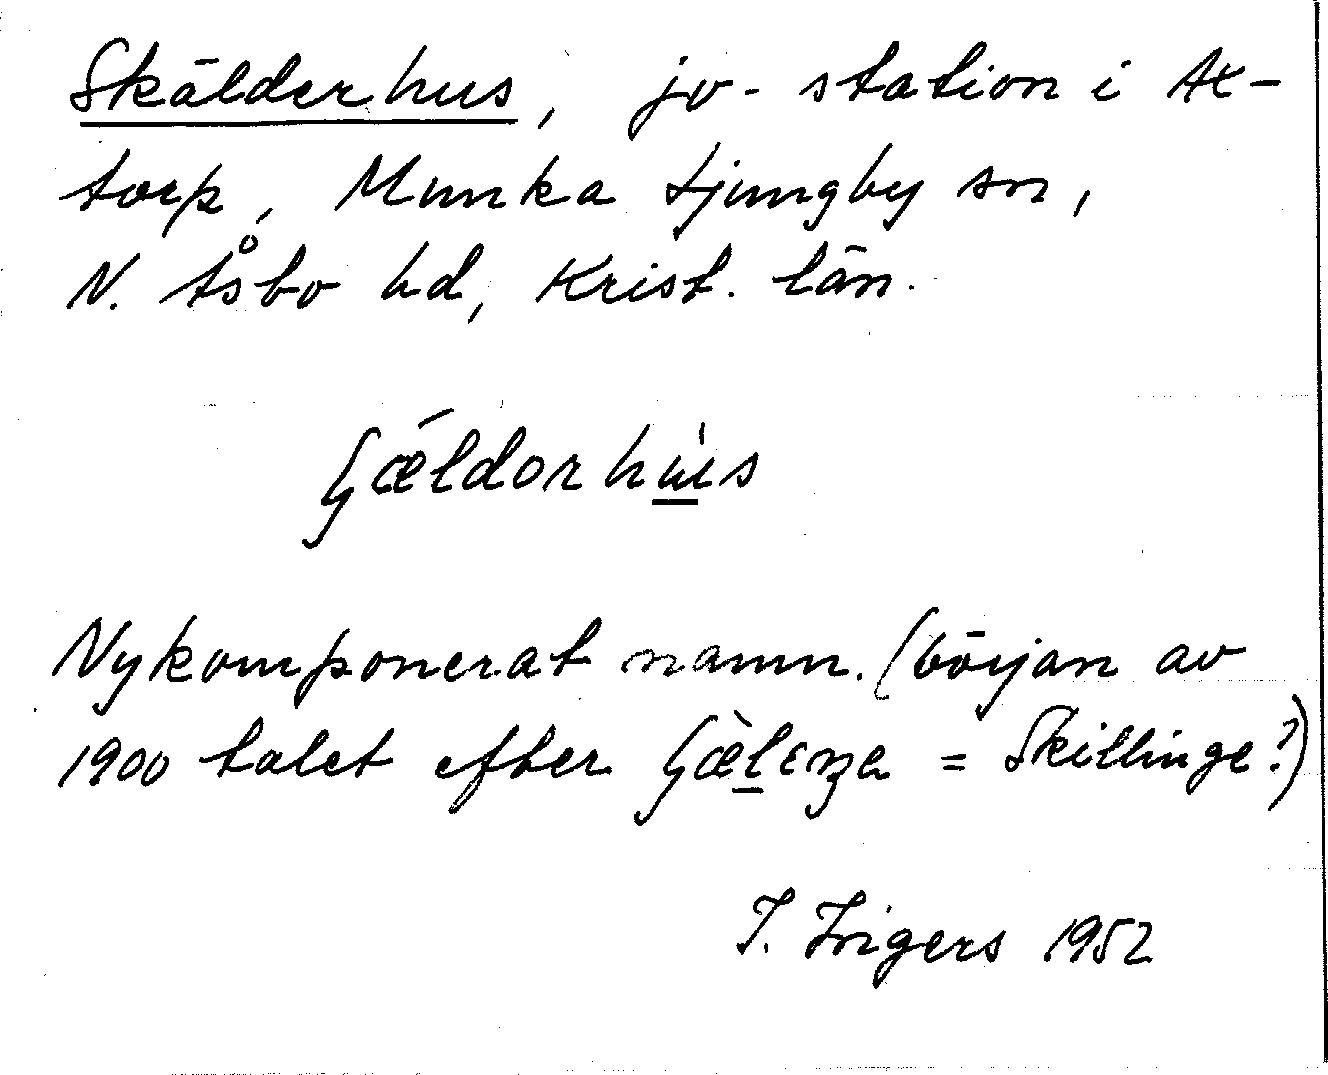 Skälderhus, jv-station i Ax-
torp, Munka Ljungby sn,
N. Åsbo hd, Krist. län.
Nykomponerat namn. (början av
1900 talet efter = Skillinge?)
1952